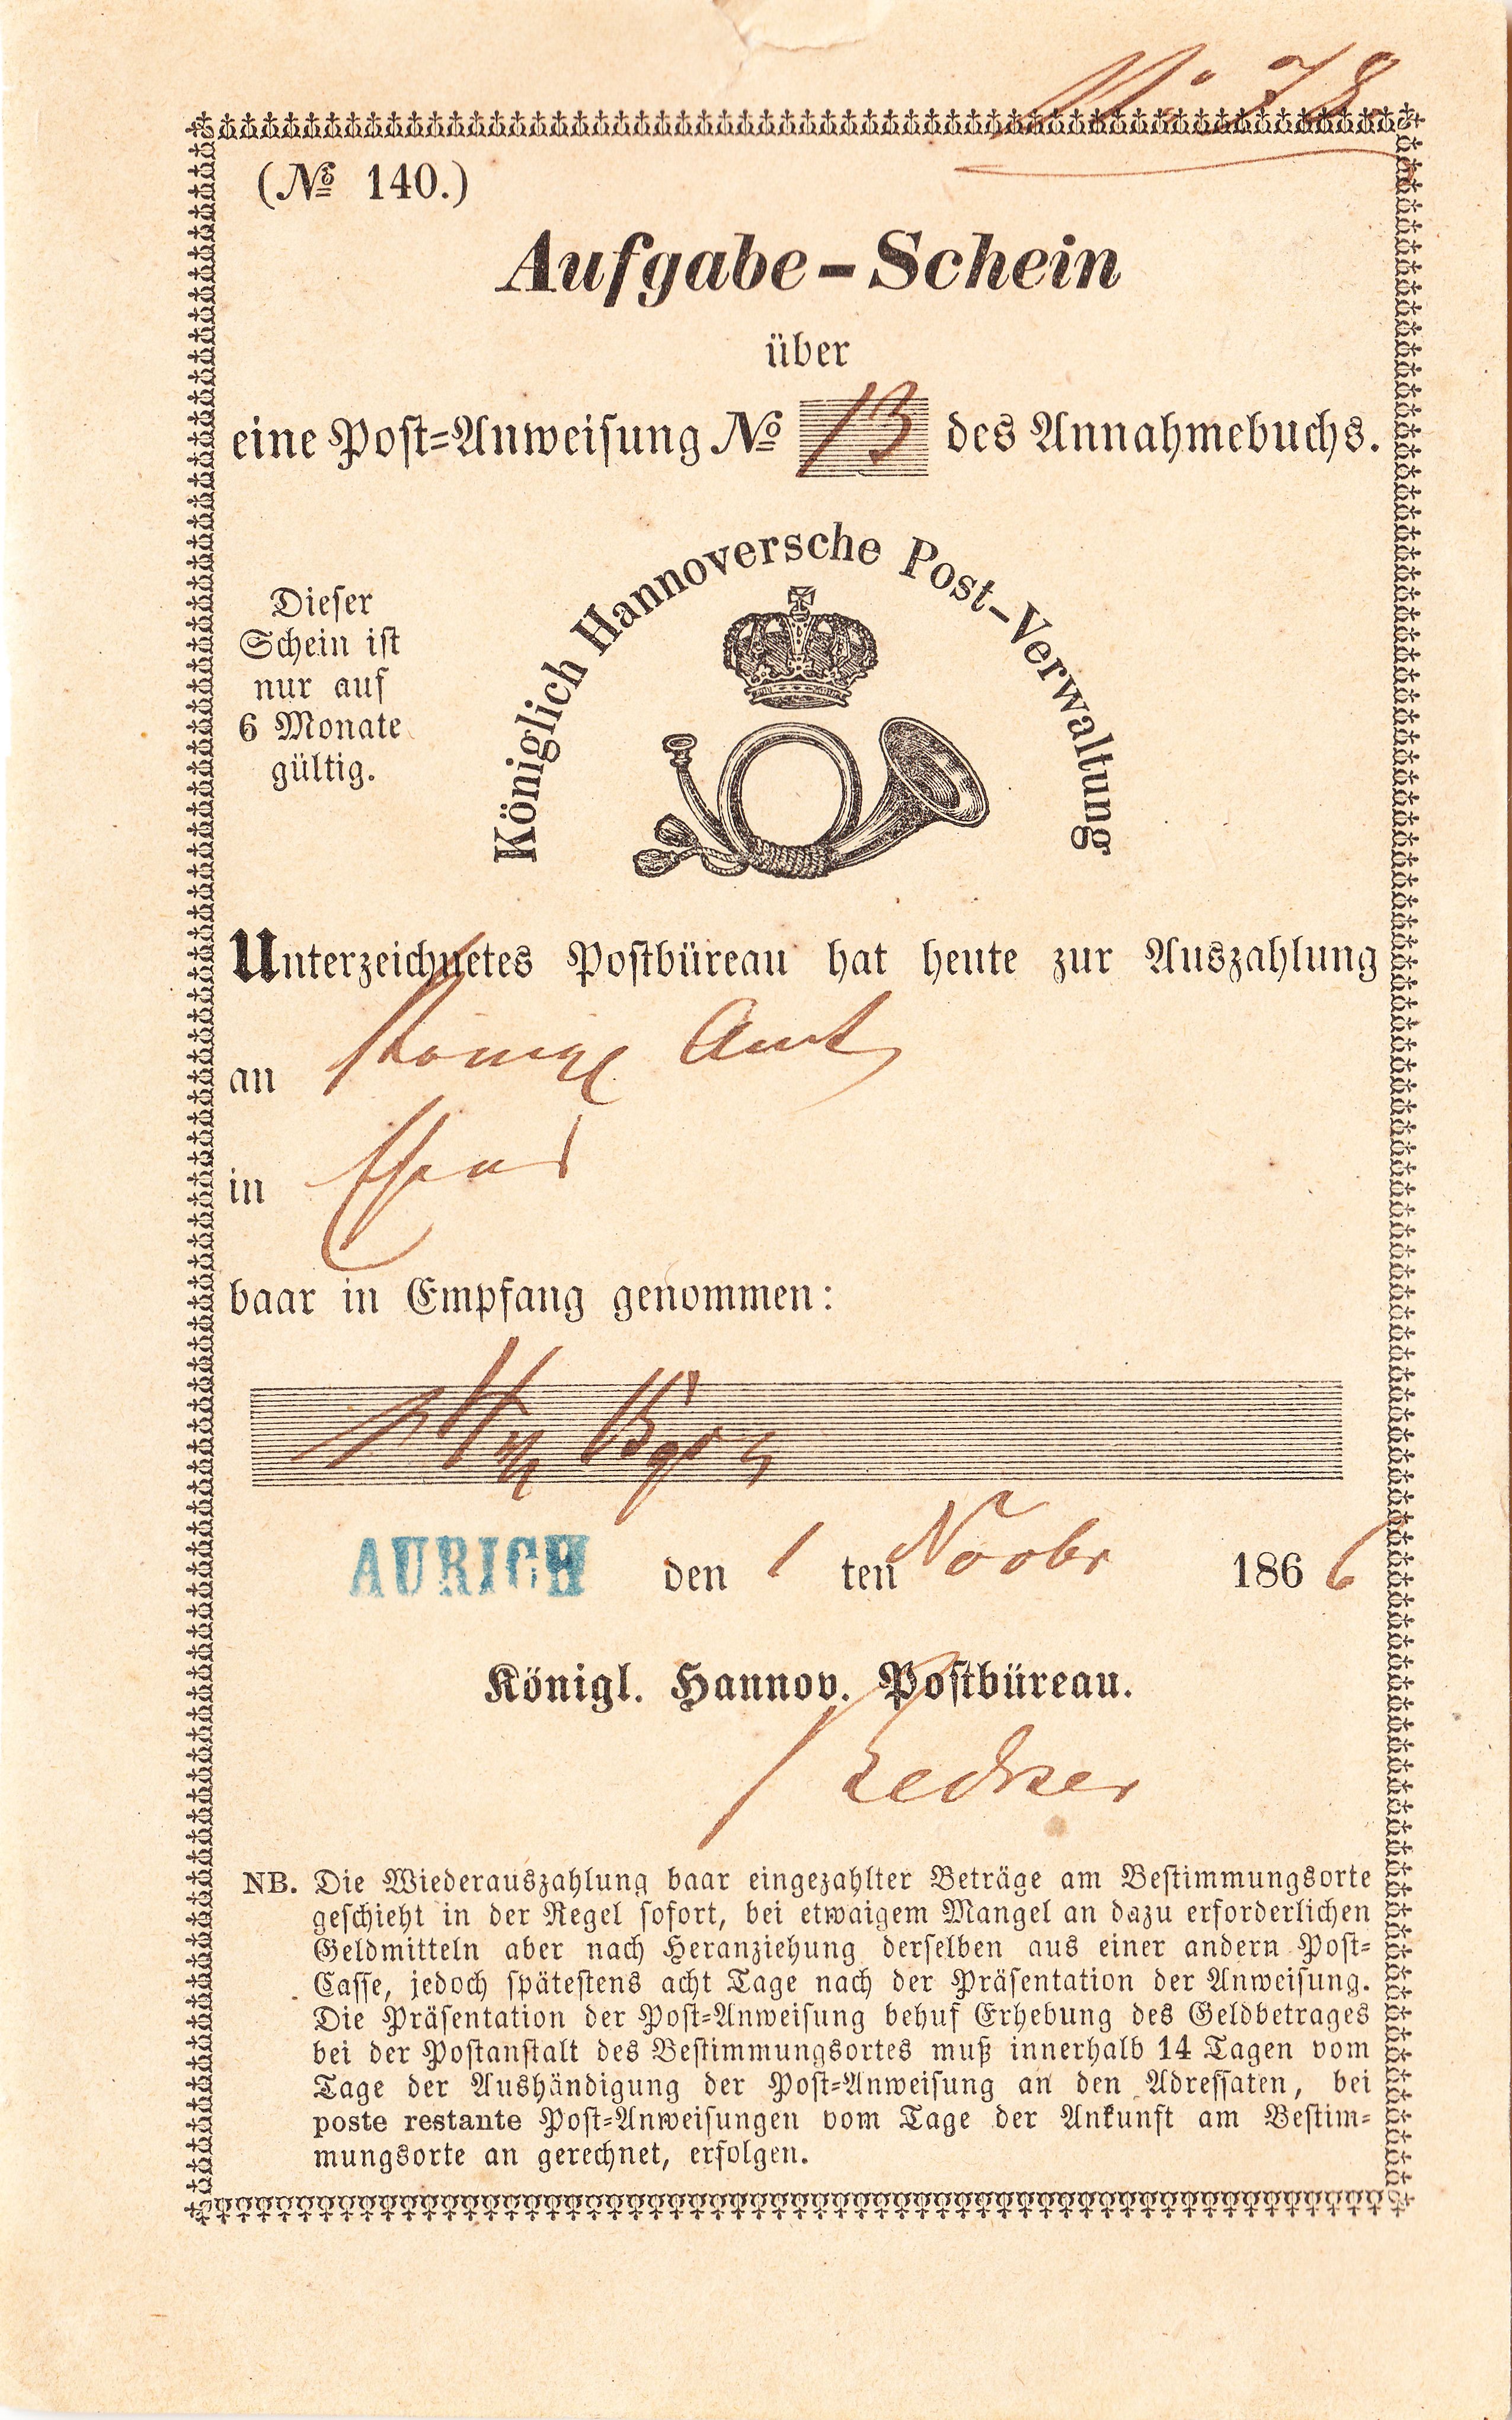 No. 78.
(No 140.)
Aufgabe-Schein
über
eine Post-Anweisung No 13 des Annahmebuchs.
Dieser
Schein ist
nur auf
6 Monate
gültig.
Königlich Hannoversche Post-Verwaltung
Unterzeichnetes Postbüreau hat heute zur Auszahlung
an Königl Amt
in Esens
baar in Empfang genommen:
AURICH den 1 ten Novbr 1866
Königl. Hannov. Postbüreau.
NB. Die Wiederauszahlung baar eingezahlter Beträge am Bestimmungsorte
geschieht in der Regel sofort, bei etwaigem Mangel an dazu erforderlichen
Geldmitteln aber nach Heranziehung derselben aus einer andern Post-
Casse, jedoch spätestens acht Tage nach der Präsentation der Anweisung.
Die Präsentation der Post-Anweisung behuf Erhebung des Geldbetrages
bei der Postanstalt des Bestimmungsortes muß innerhalb 14 Tagen vom
Tage der Aushändigung der Post-Anweisung an den Adressaten, bei
poste restante Post-Anweisungen vom Tage der Ankunft am Bestim-
mungsorte an gerechnet, erfolgen.